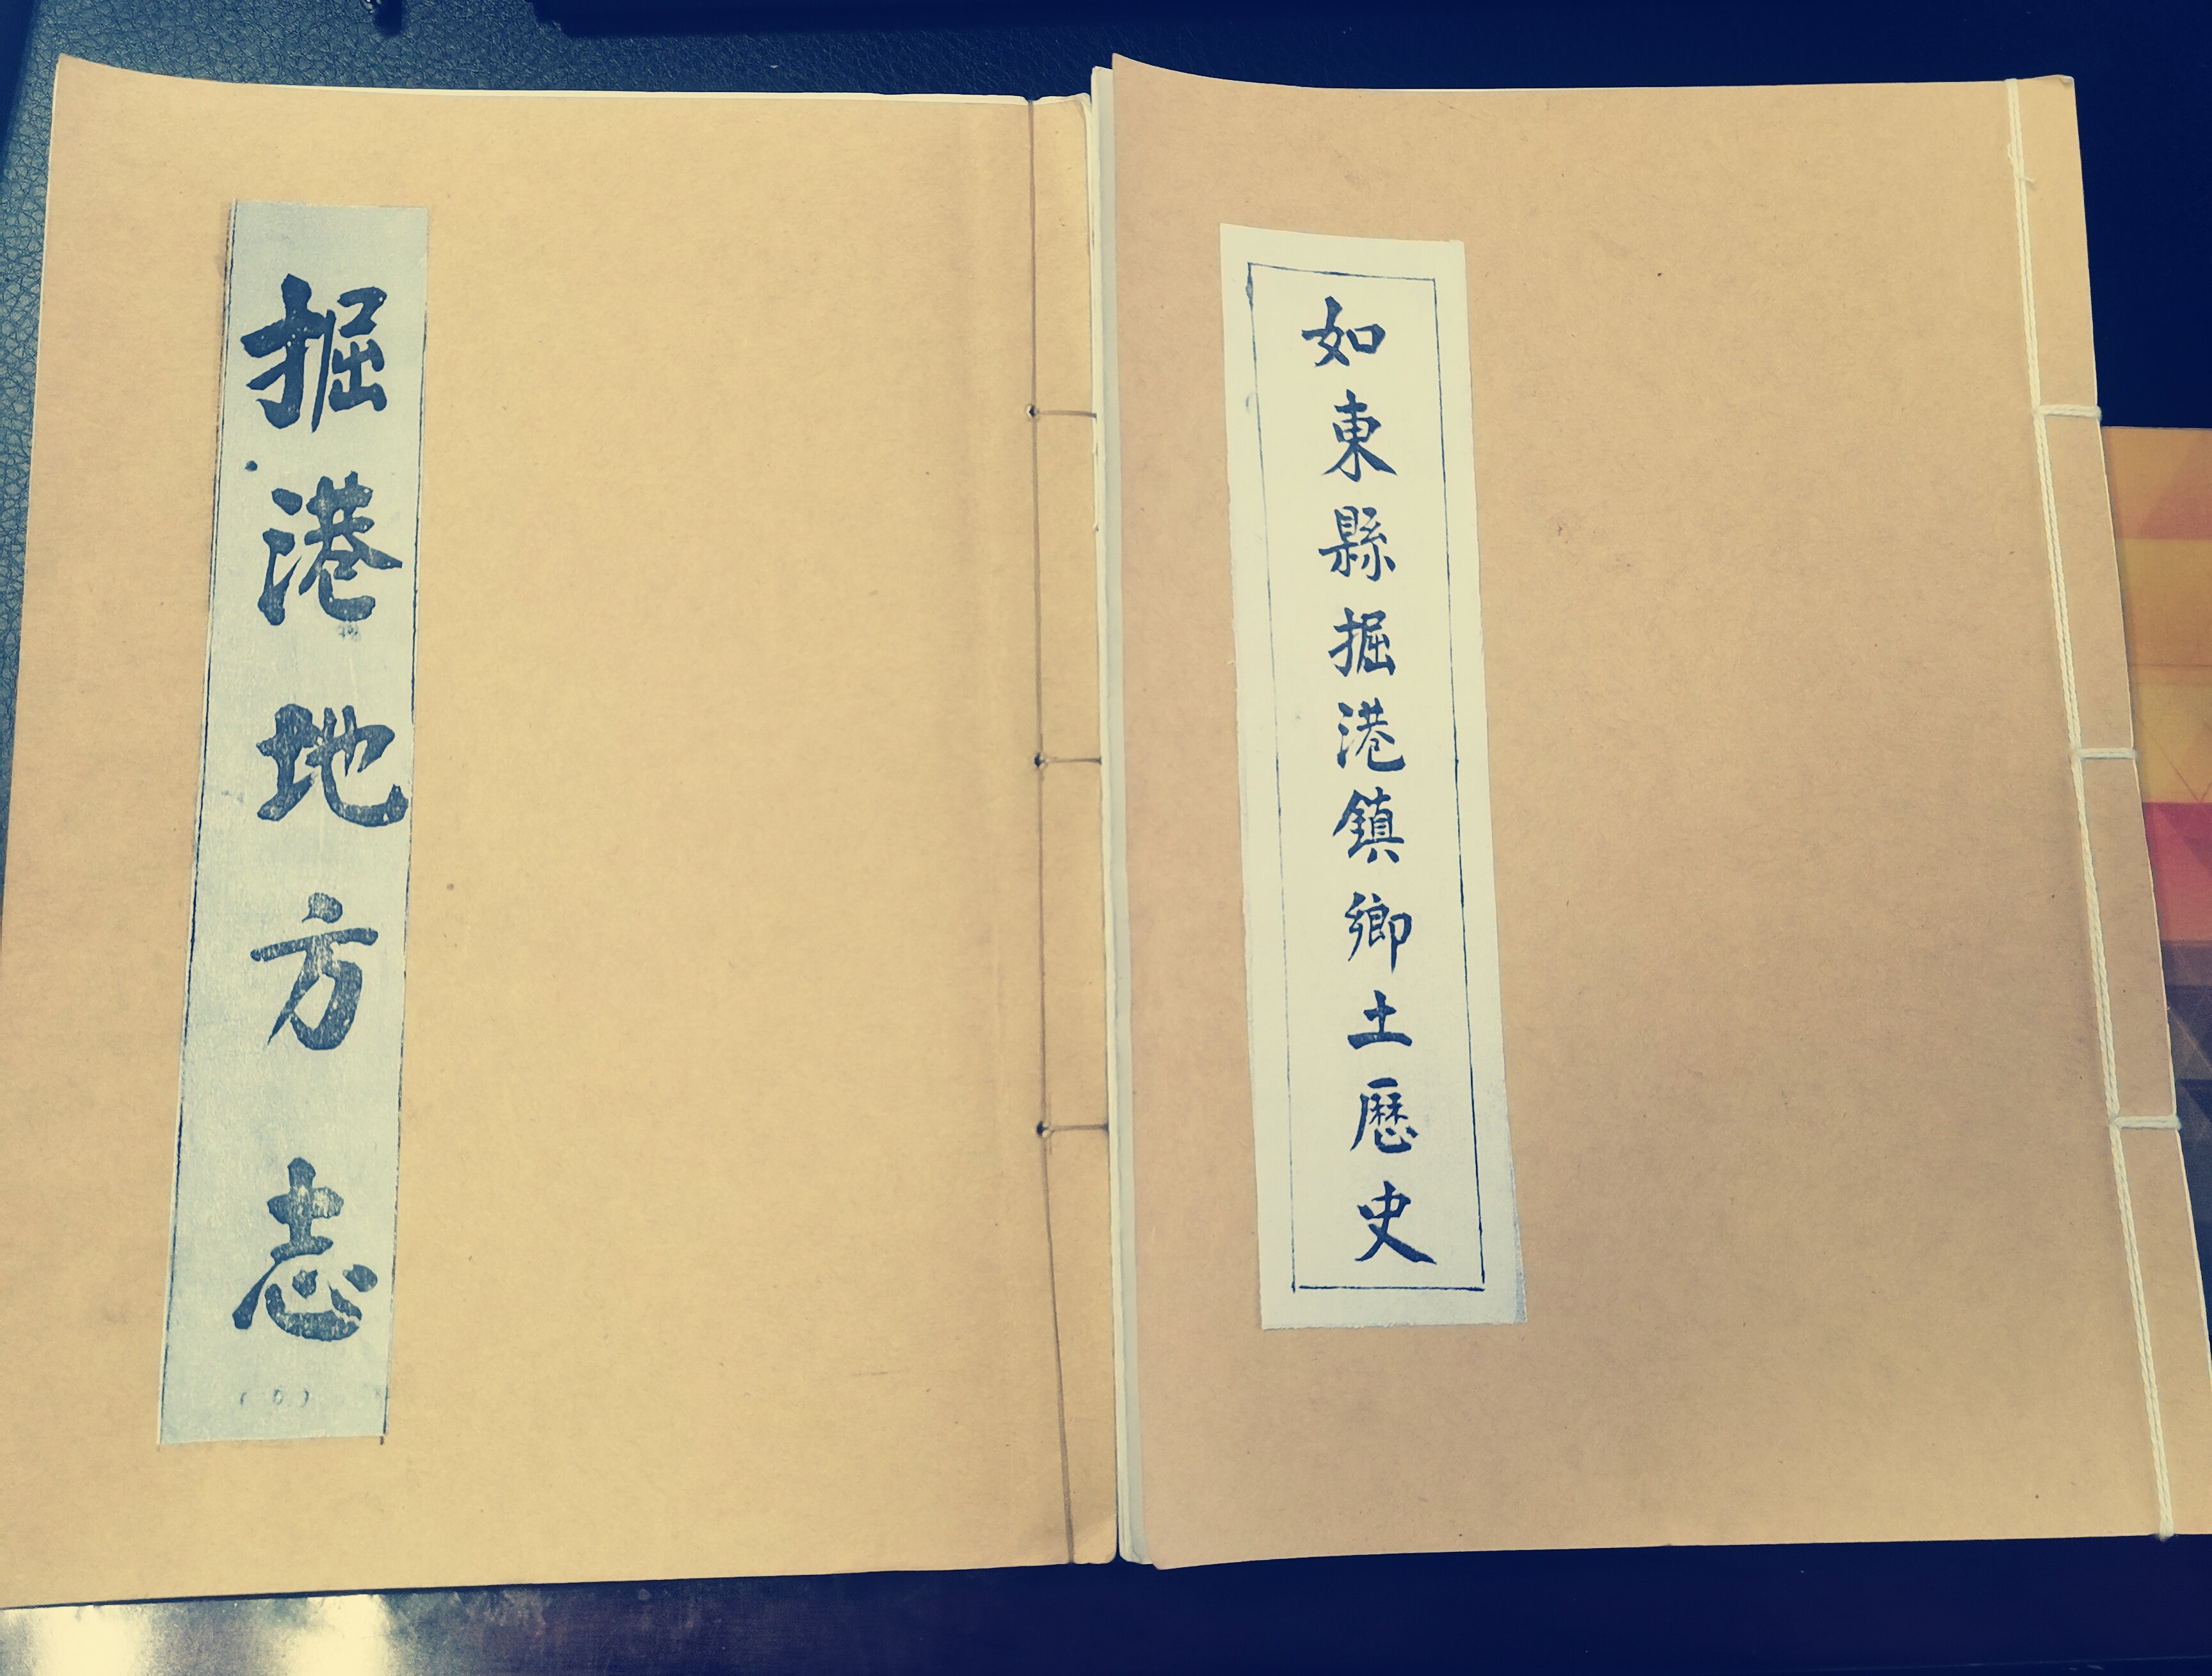 如東縣掘港鎮鄉土歷史
掘港地方志